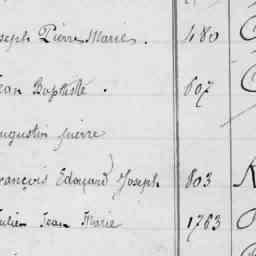 oseph Pierre Marie. 480
Jean Baptiste. 807
Augustin pierre
rançois Edouard Joseph 803
ulien Jean Marie 1763